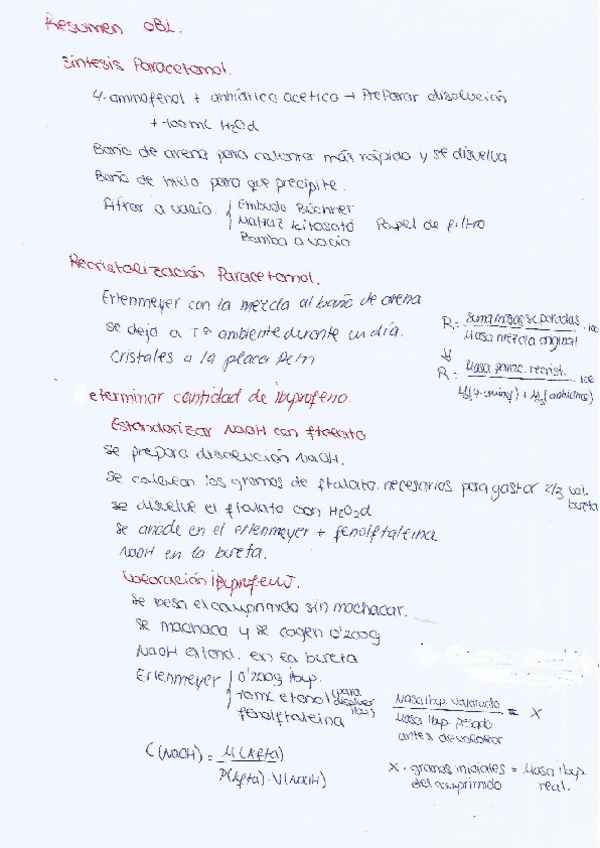 Resumen OBL.
Síntesis Paracetamol.
4-aminofenol + anhídrico acetico → Preparar disolución
+ 100 mL H2Od
Baño de arena para calentar más rápido y se disuelva
Baño de hielo para que precipite.
Filtrar a vacío. Embudo Büchner
Matraz kitasato Papel de filtro
Bomba a vacío
Recristalización Paracetamol.
Erlenmeyer con la mezcla al baño de arena
se deja a Tª ambiente durante un día.
Cristales a la placa Petri
R = Suma masas separadas · 100
Masa mezcla original
R = Masa parac. recrist. · 100
(4-aminof) + (anhídrico)
eterminar cantidad de ibuprofeno.
Estandarizar NaOH con ftalato
se prepara disolución NaOH.
se calculan los gramos de ftalato necesarios para gastar 2/3 vol.
bureta
se disuelve el ftalato con H2O2d
se añade en el erlenmeyer + fenolftaleina
NaOH en la bureta.
Valoración ibuprofeno.
se pesa el comprimido sin machacar.
se machaca y se cogen 0'200g
NaOH estand. en la bureta
Erlenmeyer 0'200g ibup.
10mL etanol (para disolver ibu)
fenolftaleina
Masa ibup. valorado = X
Masa ibup. pesado
antes de valorar
C(NaOH) = M(Kfta)
P(Kfta) · V(NaOH)
X · gramos iniciales = Masa ibup.
del comprimido real.